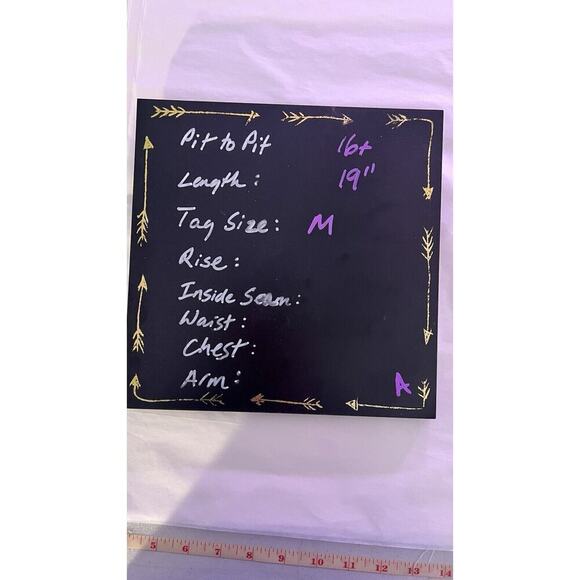 Pit to Pit 16+
Length: 19"
Tag Size: M
Rise:
Inside Seam:
Waist:
Chest:
Arm:
A
5 6 7 8 9 10 11 12 13 14